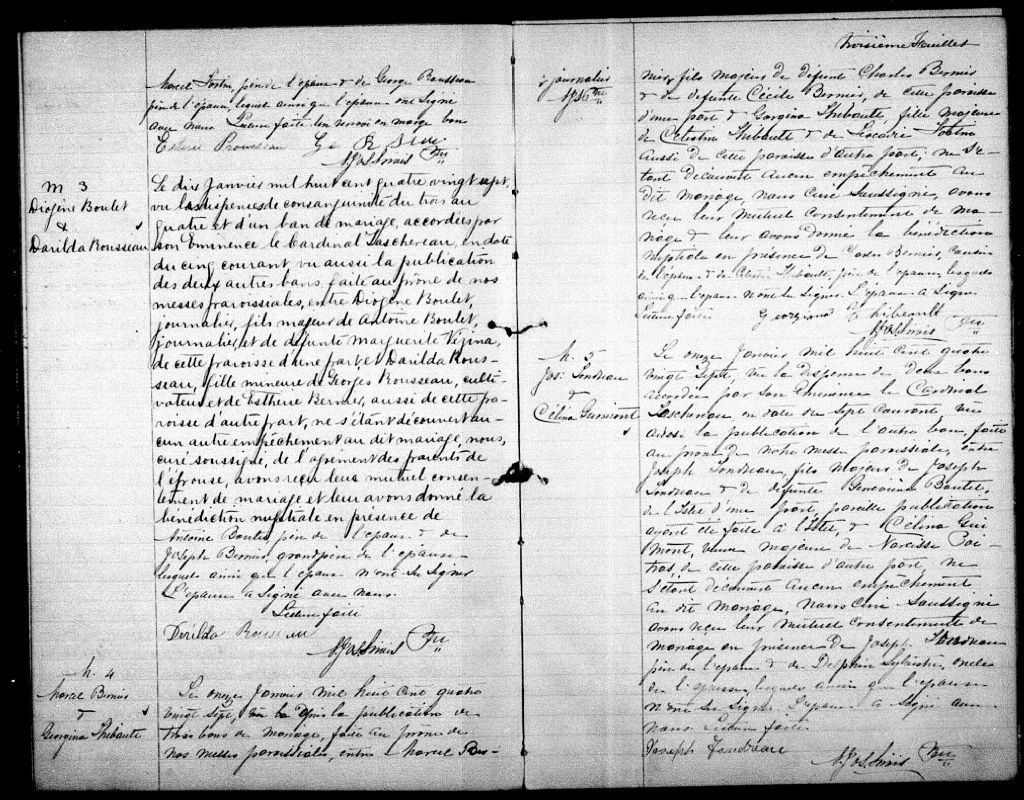 Marcel Fortin, père de l'épaux & de George Rousseau
père de l'épause lequel ainsi que l'epause ont signé
avec nous Lecture faite un renvoi en marge bon
Esther Rousseau Geo R
Ptre
M 3
Diogène Boulet
&
Darilda Rousseau
Le dix Janvier mil huit cent quatre vingt sept,
vu les dispenses de consanguinité du trois au
quatre et d'un ban de mariage, accordées par
son Eminence le Cardinal Taschereau, en date
du cinq courant, vu aussi la publication
des deux autres bans, faite au prône de nos
messes paroissiales, entre Diogène Boulet,
journalier, fils majeur de Antoine Boulet,
journalier, et de défunte marguerite Vézina,
de cette paroisse d'une part, et Darilda Rous-
seau, fille mineure de Georges Rousseau, culti-
vateur, et de Esthérie Bernier, aussi de cette pa-
roisse d'autre part, ne s'étant découvert au-
cun autre empêchement au dit mariage, nous,
curé soussigné, de l'agrément des parents de
l'épouse, avons reçu leur mutuel consen-
tement de mariage et leur avons donné la
bénédiction nuptiale en présence de
Antoine Boulet, père de l'epaux & de
Joseph Bernier, grandpère de l'epause
lesquels ainsi que l'epaux n'ont su signer
L'epause a signé avec nous.
Lecture faite
Derilda Rousseau
Ptre
M. 4
Marcel Bernier
&
Georgina Thibault
Le onze Janvier mil huit cent quatre
vingt sept, vu la après la publication de
trois bans de mariage, faite au prône de
nos messes paroissiales, entre Marcel Ber-
Troisième Feuillet
journalier
Ptre
nier, fils majeur de défunt Charles Bernier
& de défunte Cécile Bernier, de cette paroisse
d'une part & Georgina Thibault, fille majeure
de Célestin Thibault & de Léocadie Fortin
aussi de cette paroisse d'autre part, ne s'é-
tant découvert aucun empêchement au
dit mariage, nous curé soussigné, avons
reçu leur mutuel consentement de ma-
riage & leur avons donné la bénédiction
nuptiale en présence de Bernier, cousin
de l'epaux & de Célestin Thibault, père de l'epause, lesquels
ainsi que l'epaux n'ont su signer. L'épause a signé
Lecture faite Georgiana Thibeault
Ptre
M. 5
Jos: Tondreau
&
Célina Guimont
Le onze Janvier, mil huit cent quatre
vingt sept, vu la dispense de deux bans
accordée par Son Eminence le Cardinal
Taschereau en date du sept courant, vu
aussi la publication de l'autre ban, faite
au prône de notre messe paroissiale, entre
Joseph Tondreau, fils majeur de Joseph
Tondreau & de défunte Geneviève Boulet,
de l'Islet d'une part, pareille publication
ayant été faite à l'Islet, & Célina Gui
mont, veuve majeure de Narcisse Poi-
tras, de cette paroisse d'autre part, ne
s'étant découvert aucun empêchement
au dit mariage, nous curé soussigné
avons reçu leur mutuel consentement de
mariage en présence de Joseph Tondreau
père de l'epaux & de Delphin Sylvestre, oncle
de l'epause, lesquels ainsi que l'epause
n'ont su signer L'epaux a signé avec
nous Lecture faite
Joseph Tondreau
Ptre